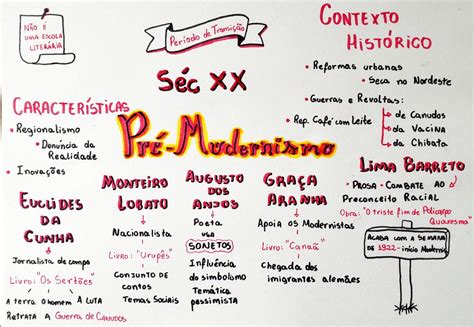 NÃO É
UMA ESCOLA
LITERÁRIA
Período de Transição
SÉC XX
Pré-Modernismo
CONTEXTO
HISTÓRICO
• Reformas urbanas
• Seca no Nordeste
• Guerras e Revoltas:
• Rep. Café com Leite
de Canudos
da Vacina
da Chibata
CARACTERÍSTICAS
• Regionalismo
• Denúncia da
Realidade
• Inovações
EUCLIDES
DA
CUNHA
Jornalista de campo
Livro: "Os Sertões"
A terra O homem A luta
RETRATA A Guerra de CANUDOS
MONTEIRO
LOBATO
Nacionalista
Livro: "Urupês"
CONJUNTO DE
CONTOS
TEMAS SOCIAIS
AUGUSTO
DOS
ANJOS
Poeta
usa
SONETOS
Influência
do simbolismo
Temática
pessimista
GRAÇA
ARANHA
Apoia os Modernistas
Livro: "Canaã"
Chegada dos
imigrantes alemães
LIMA BARRETO
• PROSA - COMBATE AO
Preconceito Racial
Obra: "O triste fim de Policarpo
Quaresma"
ACABA COM A SEMANA
DE 1922 - início Modernis.